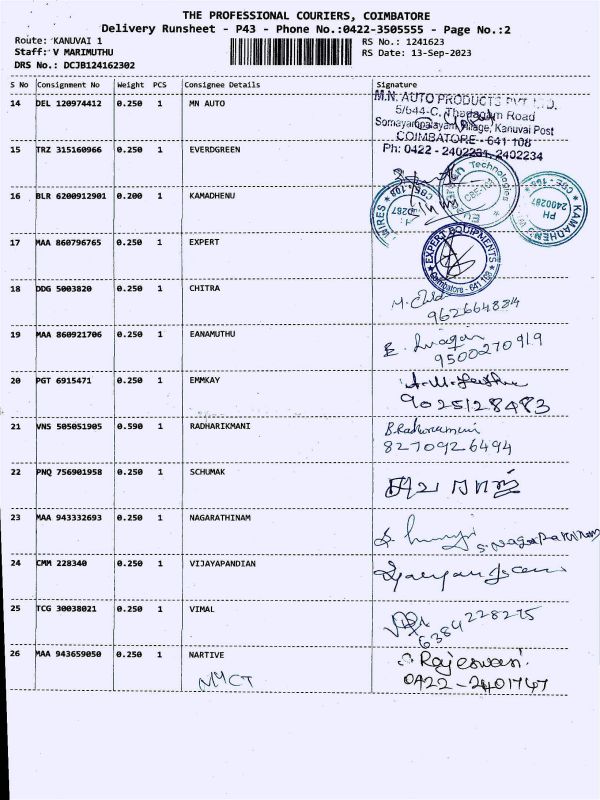 THE PROFESSIONAL COURIERS, COIMBATORE
Delivery Runsheet - P43 - Phone No.:0422-3505555 - Page No.:2
Route: KANUVAI 1
RS No.: 1241623
Staff: V MARIMUTHU
RS Date: 13-Sep-2023
DRS No.: DCJB124162302
S No Consignment No Weight PCS Consignee Details Signature
14 DEL 120974412 0.250 1 MN AUTO
M.N. AUTO PRODUCTS PVT. LTD.
5/644-C, Thadagam Road
Somayampalayam Village, Kanuvai Post
COIMBATORE - 641 108
Ph: 0422 - 2402231, 2402234
15 TRZ 315160966 0.250 1 EVERDGREEN
Technologies
CBE-108
16 BLR 6200912901 0.200 1 KAMADHENU
WIRES * CBE-108
KAMADHENU
CBE - 108
PH
2400287
17 MAA 860796765 0.250 1 EXPERT
EXPERT EQUIPMENTS
Coimbatore - 641 108
18 DDG 5003820 0.250 1 CHITRA
962664834
19 MAA 860921706 0.250 1 EANAMUTHU
9500270919
20 PGT 6915471 0.250 1 EMMKAY
9025128483
21 VNS 505051905 0.590 1 RADHARIKMANI
8270926494
22 PNQ 756901958 0.250 1 SCHUMAK
23 MAA 943332693 0.250 1 NAGARATHINAM
24 CMM 228340 0.250 1 VIJAYAPANDIAN
25 TCG 30038021 0.250 1 VIMAL
6384228275
26 MAA 943659050 0.250 1 NARTIVE
Rajeswari
0422-2401747